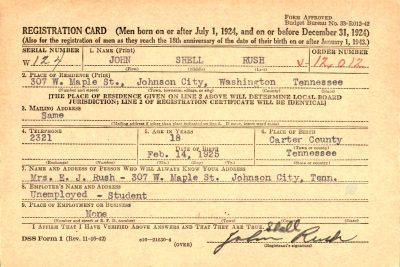 Form Approved
Budget Bureau No. 33-R012-42
REGISTRATION CARD (Men born on or after July 1, 1924, and on or before December 31, 1924)
(Also for the registration of men as they reach the 18th anniversary of the date of their birth on or after January 1, 1943.)
SERIAL NUMBER 1. NAME (Print) ORDER NUMBER
W 124 JOHN SHELL RUSH 12,012
(First) (Middle) (Last)
2. PLACE OF RESIDENCE (Print)
307 W. Maple St., Johnson City, Washington Tennessee
(Number and street) (Town, township, village, or city) (County) (State)
[THE PLACE OF RESIDENCE GIVEN ON LINE 2 ABOVE WILL DETERMINE LOCAL BOARD
JURISDICTION; LINE 2 OF REGISTRATION CERTIFICATE WILL BE IDENTICAL]
3. MAILING ADDRESS
Same
(Mailing address if other than place indicated on line 2. If same, insert word same)
4. TELEPHONE 5. AGE IN YEARS 6. PLACE OF BIRTH
2321 18 Carter County
DATE OF BIRTH (Town or county)
Feb. 14, 1925 Tennessee
(Exchange) (Number) (Mo.) (Day) (Yr.) (State or country)
7. NAME AND ADDRESS OF PERSON WHO WILL ALWAYS KNOW YOUR ADDRESS
Mrs. E. J. Rush - 307 W. Maple St. Johnson City, Tenn.
8. EMPLOYER'S NAME AND ADDRESS
Unemployed - Student
9. PLACE OF EMPLOYMENT OR BUSINESS
None
(Number and street or R. F. D. number) (Town) (County) (State)
I AFFIRM THAT I HAVE VERIFIED ABOVE ANSWERS AND THAT THEY ARE TRUE.
John Shell Rush
DSS Form 1 (Rev. 11-16-42) (OVER) (Registrant's signature)